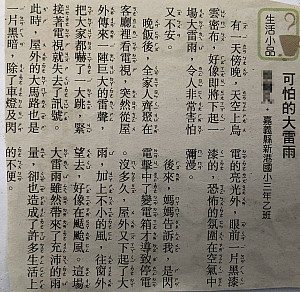 生活小品
可怕的大雷雨
嘉義縣新港國小三年乙班
有一天傍晚，天空上烏
雲密布，好像即將下起一
場大雷雨，令人非常害怕
又不安。
晚飯後，全家人齊聚在
客廳裡看電視，突然從屋
外傳來一陣巨大的雷聲，
把大家都嚇了一大跳，緊
接著電視就失去了訊號。
此時，屋外的大馬路也是
一片黑暗，除了車燈及閃
電的亮光外，眼前一片黑漆
漆的，恐怖的氛圍在空氣中
瀰漫。
後來，媽媽告訴我，是閃
電擊中了變電箱才導致停電
沒多久，屋外又下起了大
雨，加上不小的風，往窗外
望去，好像在颳颱風。這場
大雷雨雖然帶來了充沛的雨
量，卻也造成了許多生活上
的不便。